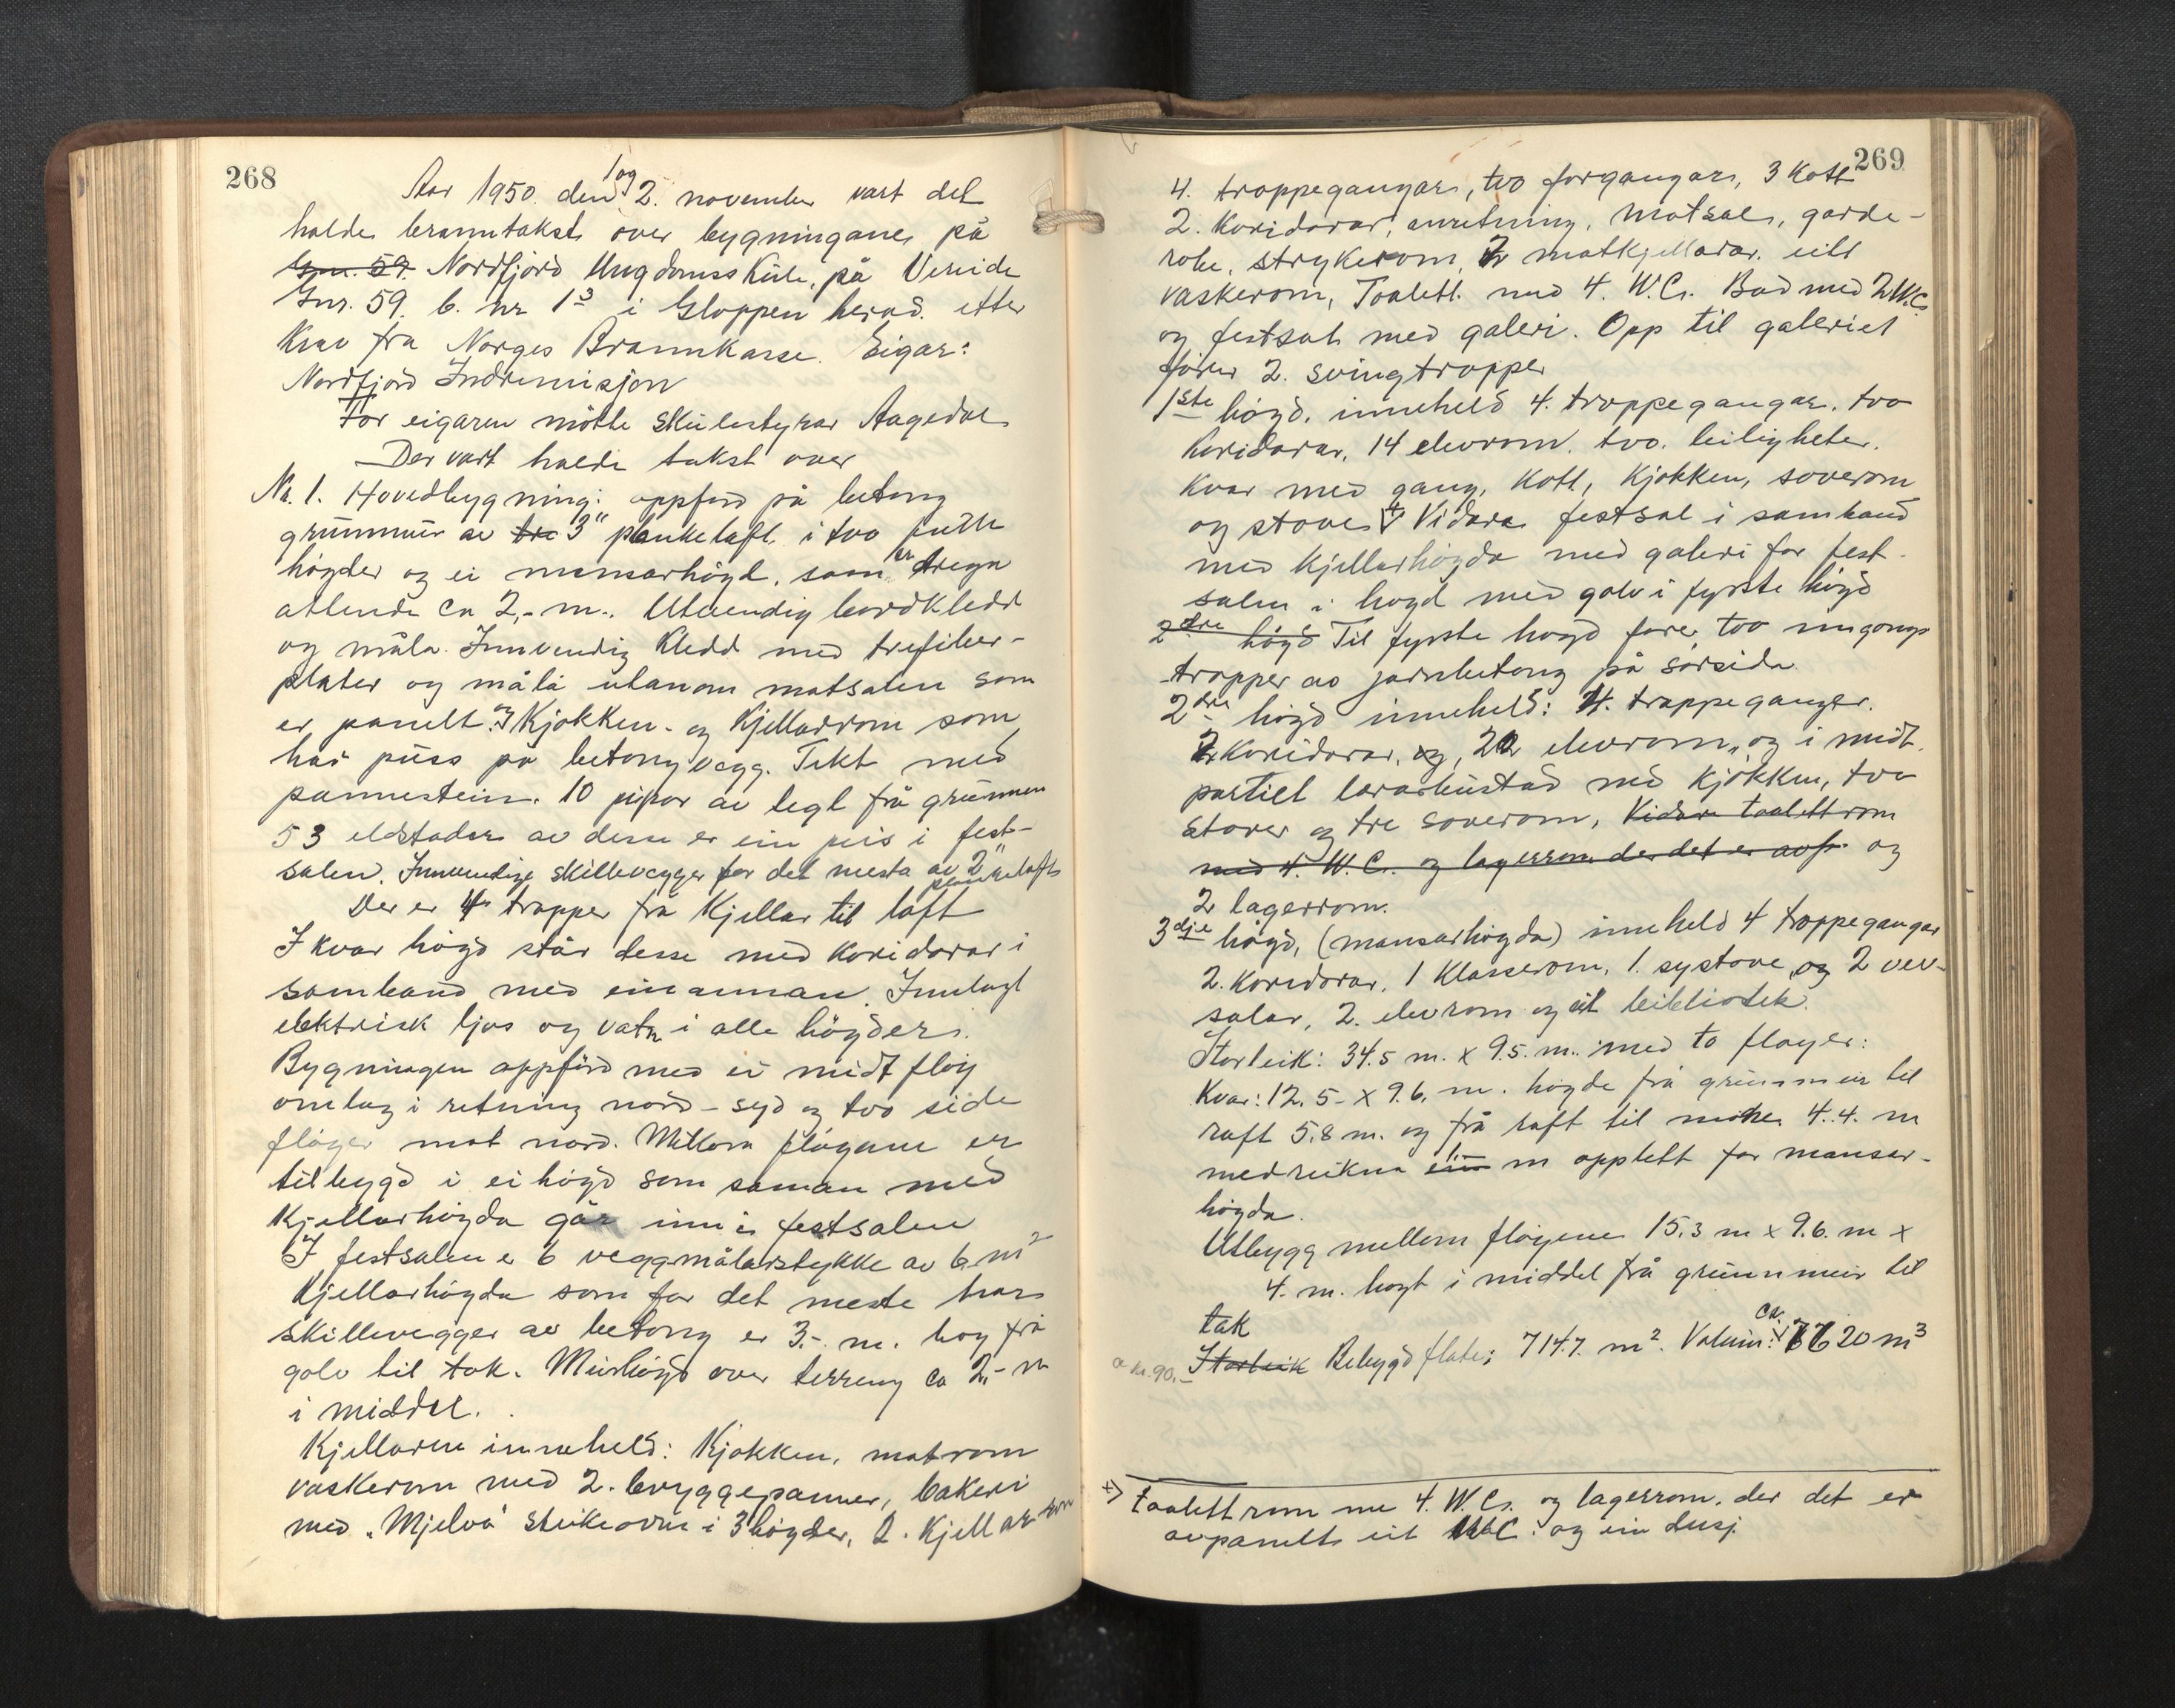 268
Aar 1950. den 1 og 2. november vart det
halde branntakst over bygningane på
Gnr. 59. Nordfjord Ungdomsskule, på Vereide
Gnr. 59. b. nr 1³ i Gloppen herad. etter
Krav fra Norges Brannkasse. Eigar:
Nordfjord Indremisjon
For eigaren møtte skulestyrar Aagedal
Der vart halde takst over
Nr. 1. Hovedbygning: oppförd på betong
grunnmur av tre 3" plankelaft i tvo fulle
högder og ei mansarhögd, som er
ca 2,- m. Utvendig bordkledd
og måla. Innvendig kledd med trefiber-
plater og måla utanom matsalen som
er panelt. og Kjøkken- og Kjellarrom som
har puss på betongvegg. Tekt med
pannestein. 10 pipor av tegl frå grunnen
53 eldstader av desse er ein peis i fest-
salen. Innvendige skillevegger for det mesta av 2"
plankelaft
Der er 4 trapper frå Kjellar til loft
I kvar högd står desse med koridorar i
samband med einannan. Innlagt
elektrisk ljos og vatn i alle högder.
Bygningen oppförd med ei midt flöy
omlag i retning nord-syd og tvo side
flöger mot nord. Millom flögane er
tilbygd i ei högd som saman med
Kjellarhögda går inn i festsalen
I festsalen e 6 veggmålarstykke av 6 m²
Kjellarhögda som for det meste har
skillevegger av betong er 3.- m. hog frå
golv til tak. Murhögd over terreng ca 2,- m
i middel.
Kjellaren inneheld: Kjøkken, matrom
vaskerom med 2. bryggepanner, bakeri
med "Mjelva" steikeovn i 3 högder, 2. Kjellarrom
269
4. trappegangar, tvo forgangar, 3 Kott
2. Koridorar, anretning, matsal, garde-
robe, strykerom, 2 matkjellarar, eitt
vaskerom, Toalett med 4. W.C. Bad med 2 W.C.
og festsal med galeri. Opp til galeriet
förer 2. svingtrapper
1ste högd, inneheld 4. trappegangar, tvo
koridorar, 14 elevrom. tvo. leiligheter.
Kvar med gang, kott, kjøkken, soverom
og stove. Vidare festsal i samband
med kjellarhögda med galeri for fest-
salen i hogd med golv i fyrste högd
2dre högd Til fyrste hogd förer tvo inngongs
trapper av jarnbetong på sørsida.
2dre högd inneheld: 4. trappeganger.
2 Koridorar, og, 22 elevrom, og i midt
partiet lærarbustad med kjøkken, tvo
stover og tre soverom, Vidare toalettrom
med 4. W.C. og lagerrom der det er avp. og
2 lagerrom.
3dje högd, (mansarhögda) inneheld 4 trappegangar
2. Koridorar, 1 Klasserom, 1. systove, og 2 vev-
salar, 2. elevrom og eit bibliotek.
Storleik: 34.5 m. x 9.5. m. med to flöyer:
Kvar: 12.5- x 9.6. m. högde frå grunnmur til
raft 5.8 m. og frå raft til möne 4.4. m
medrekna ein m opplett for mansar-
högda.
Utbygg mellom flöyene 15.3 m x 9.6. m x
4. m. hogt i middel frå grunnmur til
tak
a kr. 90.- Storleik Bebygd flate: 714.7. m². Volum: ca. 7620 m³
+) toalettrom me 4. W.C. og lagerrom, der det er
avpanelt eit W.C. og ein dusj.